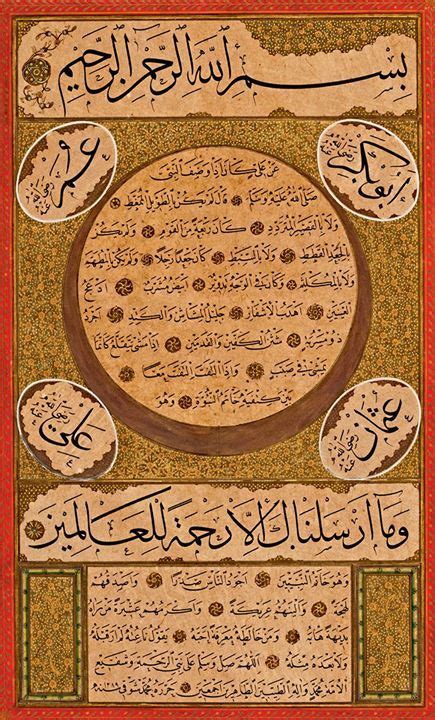 بسم الله الرحمن الرحيم
ابوبكر رضي الله عنه
عمر رضي الله عنه
عن علي كان اذا وصف النبي
صلى الله عليه وسلم قال لم يكن بالطويل الممغط
ولا بالقصير المتردد كان ربعة من القوم ولم يكن
بالجعد القطط ولا بالسبط كان جعدا رجلا ولم يكن بالمطهم
ولا بالمكلثم وكان في الوجه تدوير ابيض مشرب ادعج
العينين اهدب الاشفار جليل المشاش والكتد اجرد
ذو مسربة شثن الكفين والقدمين اذا مشى تقلع كانما
يمشي في صبب واذا التفت التفت معا
بين كتفيه خاتم النبوة وهو
عثمان رضي الله عنه
علي رضي الله عنه
وما ارسلناك الا رحمة للعالمين
وهو خاتم النبيين اجود الناس صدرا واصدقهم
لهجة والينهم عريكة واكرمهم عشيرة من رآه
بديهة هابه ومن خالطه معرفة احبه يقول ناعته لم ار قبله
ولا بعده مثله اللهم صل وسلم على نبي الرحمة وشفيع
الامة محمد وآله الطيبين الطاهرين اجمعين حرره محمد شوقي